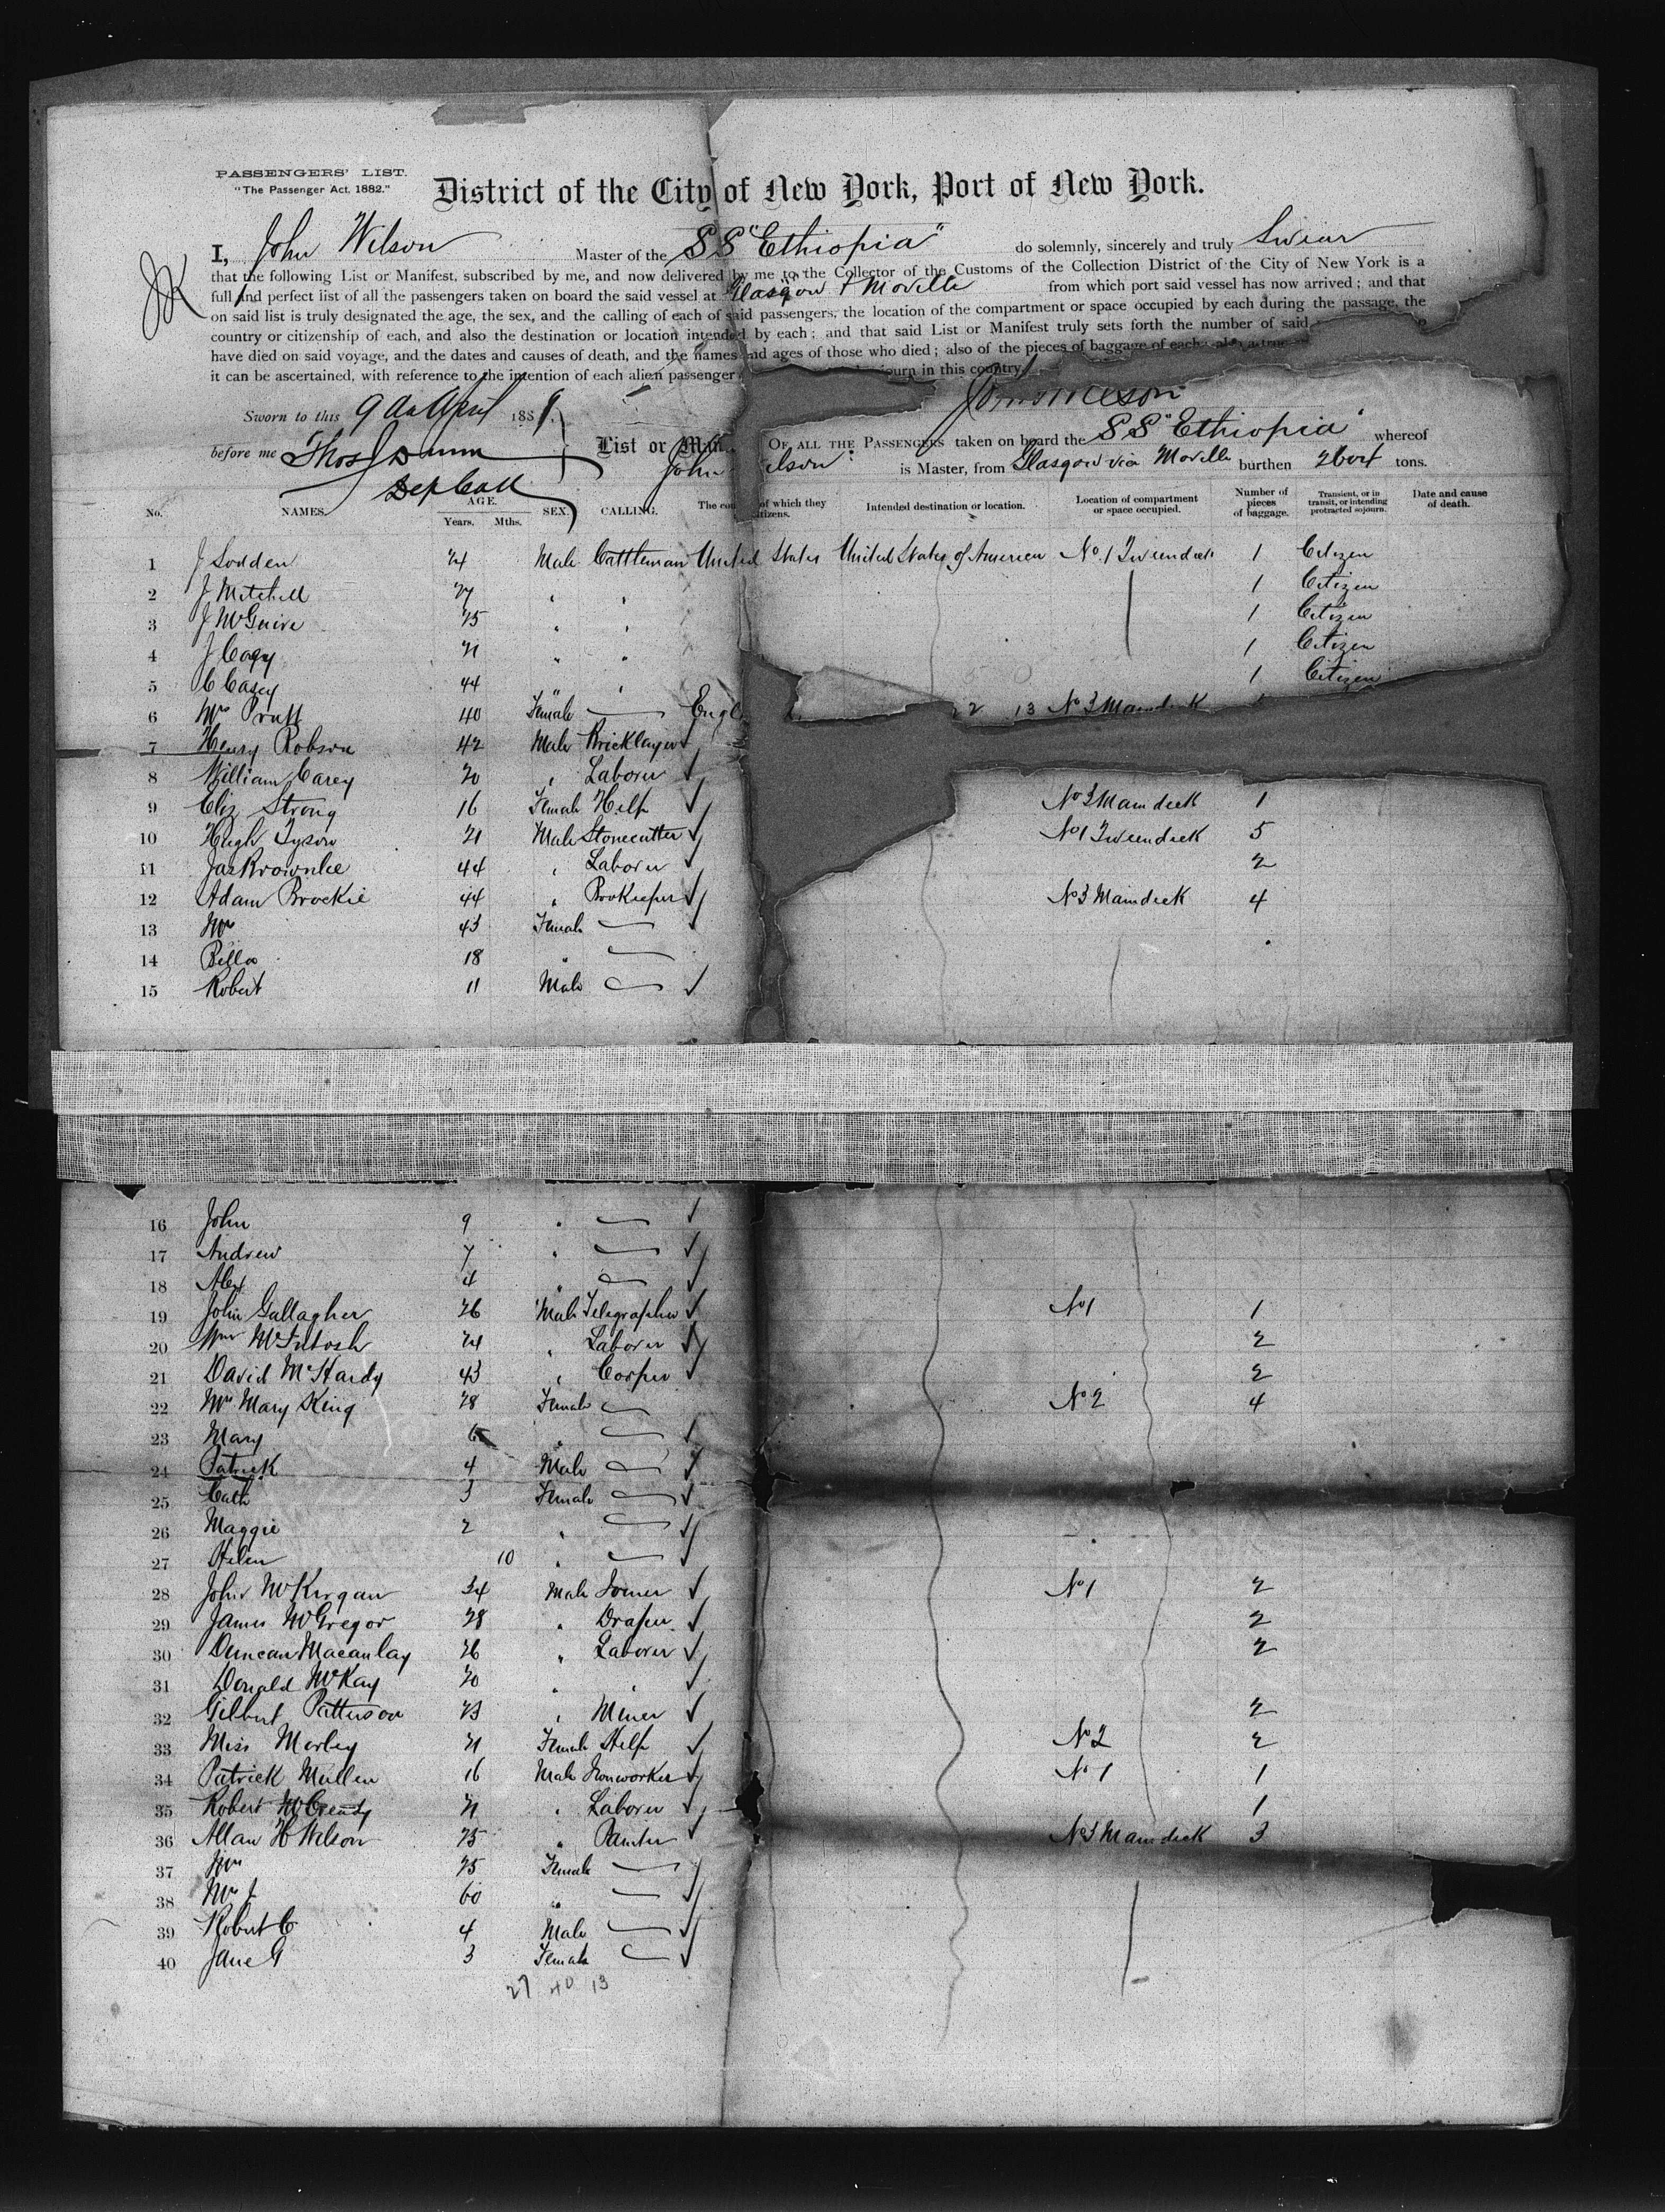 PASSENGERS' LIST.
"The Passenger Act, 1882."
District of the City of New York, Port of New York.
I, John Wilson Master of the SS "Ethiopia" do solemnly, sincerely and truly Swear
that the following List or Manifest, subscribed by me, and now delivered by me to the Collector of the Customs of the Collection District of the City of New York is a
full and perfect list of all the passengers taken on board the said vessel at Glasgow & Moville from which port said vessel has now arrived; and that
on said list is truly designated the age, the sex, and the calling of each of said passengers, the location of the compartment or space occupied by each during the passage, the
country or citizenship of each, and also the destination or location intended by each; and that said List or Manifest truly sets forth the number of said
have died on said voyage, and the dates and causes of death, and the names and ages of those who died; also of the pieces of baggage of each; also a true
it can be ascertained, with reference to the intention of each alien passenger in this country.
Sworn to this 9 da April 1889.
before me Thos Dunn
Dep Coll
List or OF ALL THE PASSENGERS taken on board the SS "Ethiopia" whereof
John is Master, from Glasgow via Moville burthen tons.
No. NAMES. AGE. Years. Mths. SEX. CALLING. of which they Intended destination or location. Location of compartment or space occupied. Number of pieces of baggage. Transient, or in transit, or intending protracted sojourn. Date and cause of death.
1 J Sodden 24 Male Cattleman United States United States of America No 1 Tweendeck 1 Citizen
2 J Mitchell 27 " " 1 Citizen
3 J McGuire 25 " " 1 Citizen
4 J 21 " " 1 Citizen
5 C Casey 44 " " 1 Citizen
6 Mrs Pratt 40 Female — 13 No 3 Maindeck
7 Henry Robson 42 Male Bricklayer
8 William Carey 20 " Laborer
9 Eliz Strong 16 Female Help No 3 Maindeck 1
10 Hugh Tyson 21 Male Stonecutter No 1 Tweendeck 5
11 Jas Brownlee 44 " Laborer 2
12 Adam Brockie 44 " Bookeeper No 3 Maindeck 4
13 Mrs 43 Female —
14 Bella 18 " —
15 Robert 11 Male —
16 John 9 " —
17 Andrew 7 " —
18 Alex 4 " —
19 John Gallagher 26 Male Telegrapher No 1 1
20 Wm McIntosh 24 " Laborer 2
21 David McHardy 43 " 2
22 Mrs Mary King 28 Female — No 2 4
23 Mary 6 " —
24 Patrick 4 Male —
25 Cath 3 Female —
26 Maggie 2 " —
27 Helen 10 " —
28 John McKirgan 34 Male Joiner No 1 2
29 James McGregor 28 " Draper 2
30 Duncan Macaulay 26 " Laborer 2
31 Donald McKay 20 " "
32 Gilbert Patterson 23 " Miner 2
33 Miss Morley 21 Female Help No 2 2
34 Patrick Mullen 16 Male Ironworker No 1 1
35 Robert McCready 21 " Laborer 1
36 Allan H Wilson 25 " Painter No 3 Maindeck 3
37 Mrs 25 Female —
38 Mrs J 60 " —
39 Robert C 4 Male —
40 Jane G 3 Female —
27 40 13